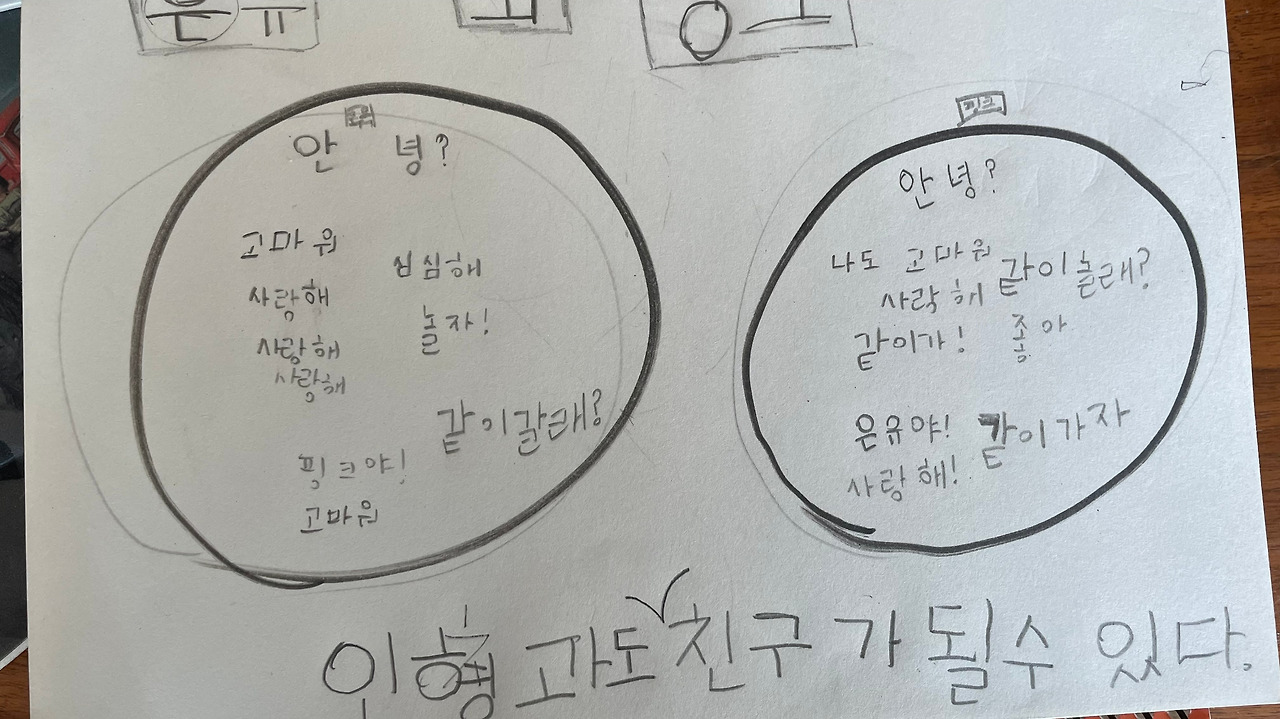 은유
안녕?
고마워
심심해
사랑해
놀자!
사랑해
사랑해
같이갈래?
핑크야!
고마워
핑크
안녕?
나도 고마워
같이놀래?
사랑해
같이가!
좋아
은유야!
같이가자
사랑해!
인형과도 친구가 될수 있다.